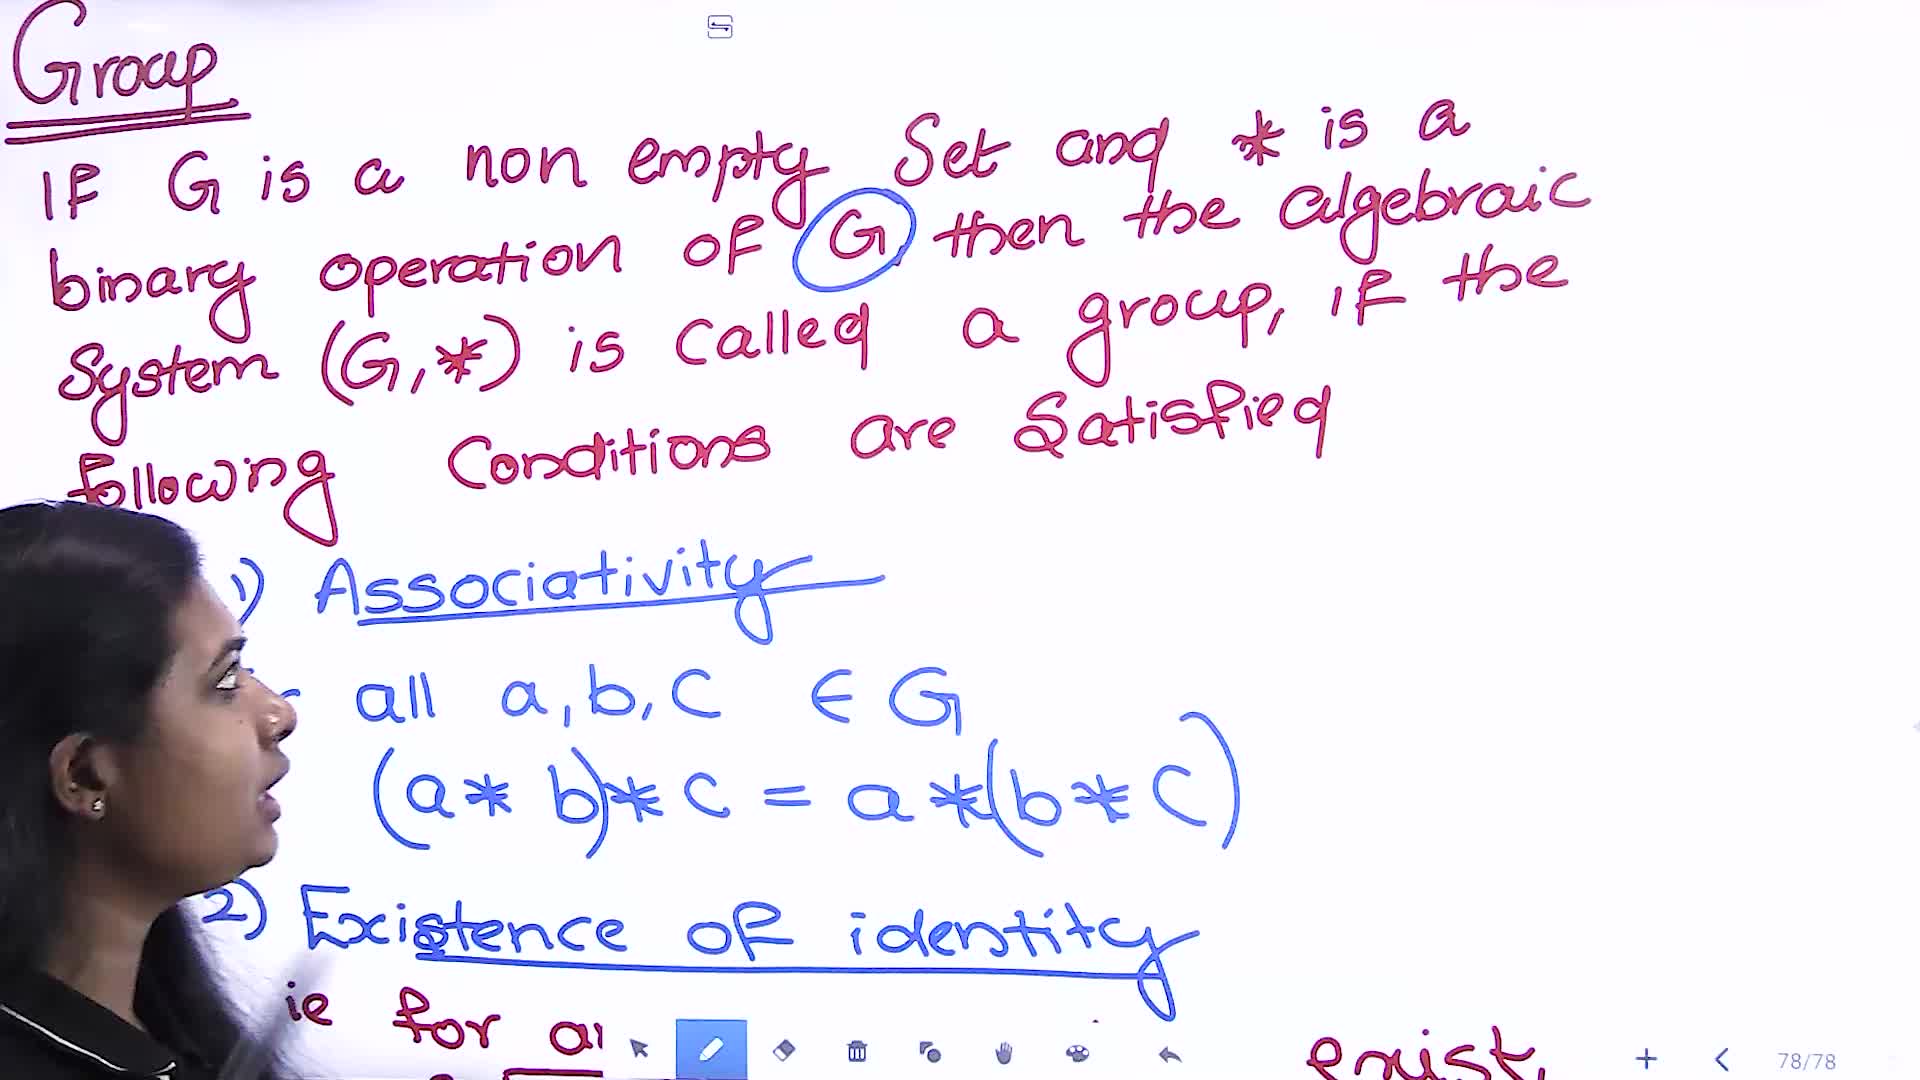 Group
If G is a non empty Set and * is a
binary operation of G, then the algebraic
System (G,*) is called a group, if the
following Conditions are Satisfied
1) Associativity
all a, b, c ∈ G
(a * b) * c = a * (b * c)
2) Existence of identity
ie for
exist,
78/78